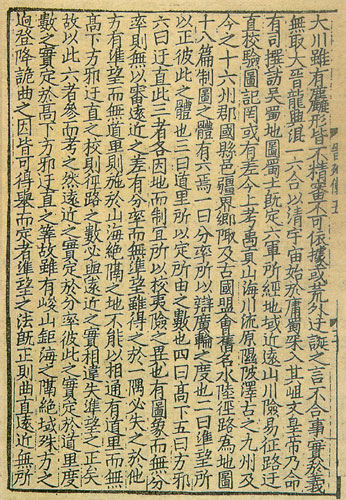 大川雖有麤形皆不精審不可依據或荒外迂誕之言不合事實於義
無取大晉龍興混一六合以清宇宙始於庸蜀冞入其岨文皇帝乃命
有司撰訪吳蜀地圖蜀土既定六軍所經地域遠近山川險易征路迂
直校驗圖記罔或有差今上考禹貢山海川流原隰陂澤古之九州及
今之十六州郡國縣邑疆界鄉陬及古國盟會舊名水陸徑路為地圖
十八篇制圖之體有六焉一曰分率所以辯廣輪之度也二曰準望所
以正彼此之體也三曰道里所以定所由之數也四曰高下五曰方邪
六曰迂直此三者各因地而制宜所以校夷險之異也有圖象而無分
率則無以審遠近之差有分率而無準望雖得之於一隅必失之於他
方有準望而無道里則施於山海絕隔之地不能以相通有道里而無
高下方邪迂直之校則徑路之數必與遠近之實相違失準望之正矣
故以此六者參而考之然遠近之實定於分率彼此之實定於道里度
數之實定於高下方邪迂直之筭故雖有峻山鉅海之隔絕域殊方之
迥登降詭曲之因皆可得舉而定者準望之法既正則曲直遠近無所